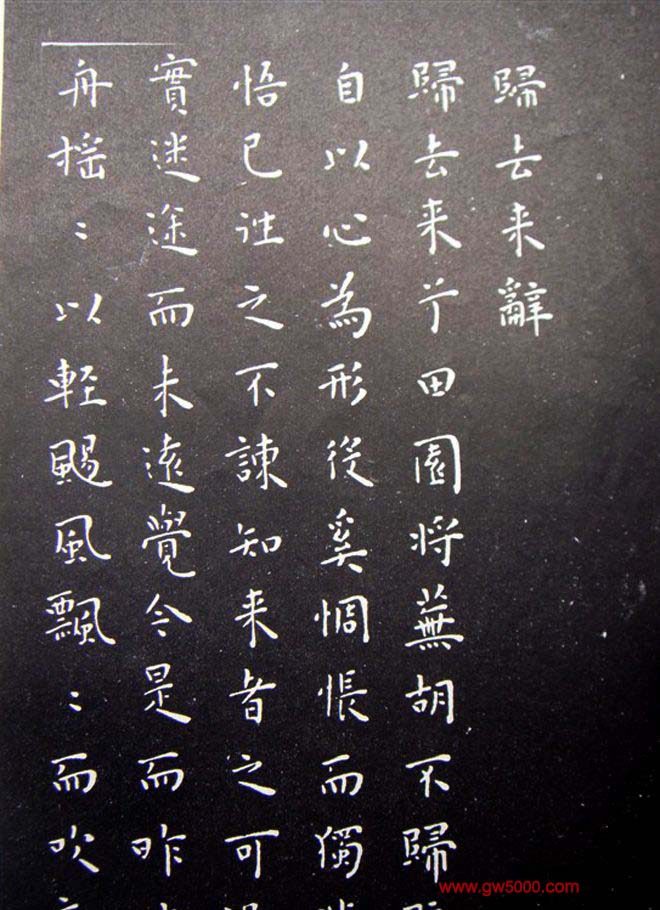 歸去来辭
歸去来兮田園将蕪胡不歸
自以心為形役奚惆悵而獨
悟已往之不諫知来者之可
實迷途而未遠覺今是而昨
舟揺〻以輕颺風飄〻而吹
www.gw5000.com